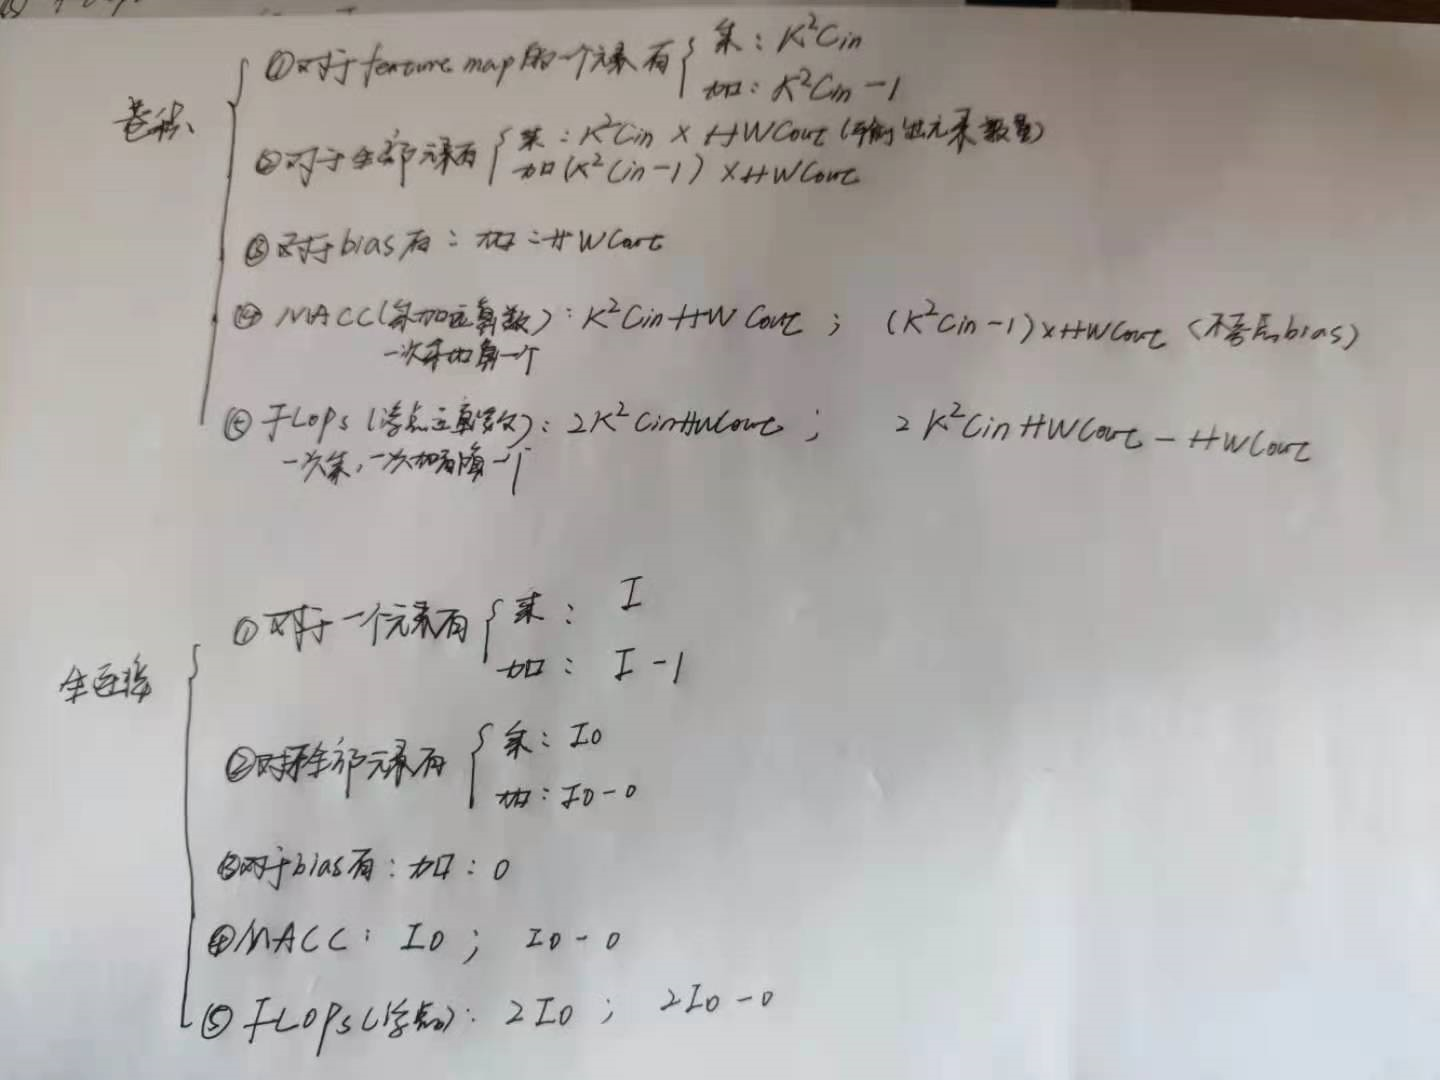 卷积
①对于feature map的一个元素有 乘：K²Cin
加：K²Cin-1
②对于全部元素有 乘：K²Cin × HWCout (输出元素数量)
加(K²Cin-1) ×HWCout
③对于bias有：加：HWCout
④ MACC(乘加运算数)：K²CinHWCout ； (K²Cin-1)×HWCout (不考虑bias)
一次乘加算一个
⑤ FLOPs (浮点运算数)：2K²CinHWCout ； 2K²CinHWCout-HWCout
一次乘，一次加看作一个
全连接
①对于一个元素有 乘： I
加： I-1
②对于全部元素有 乘：IO
加：IO-O
③对于bias有：加：O
④MACC：IO ； IO-O
⑤FLOPs(浮点)：2IO ； 2IO-O